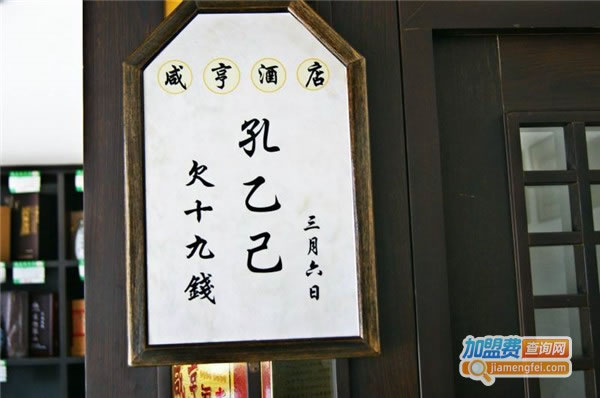 咸亨酒店
三月六日
孔乙己
欠十九錢
加盟费查询网
jiamengfei.com